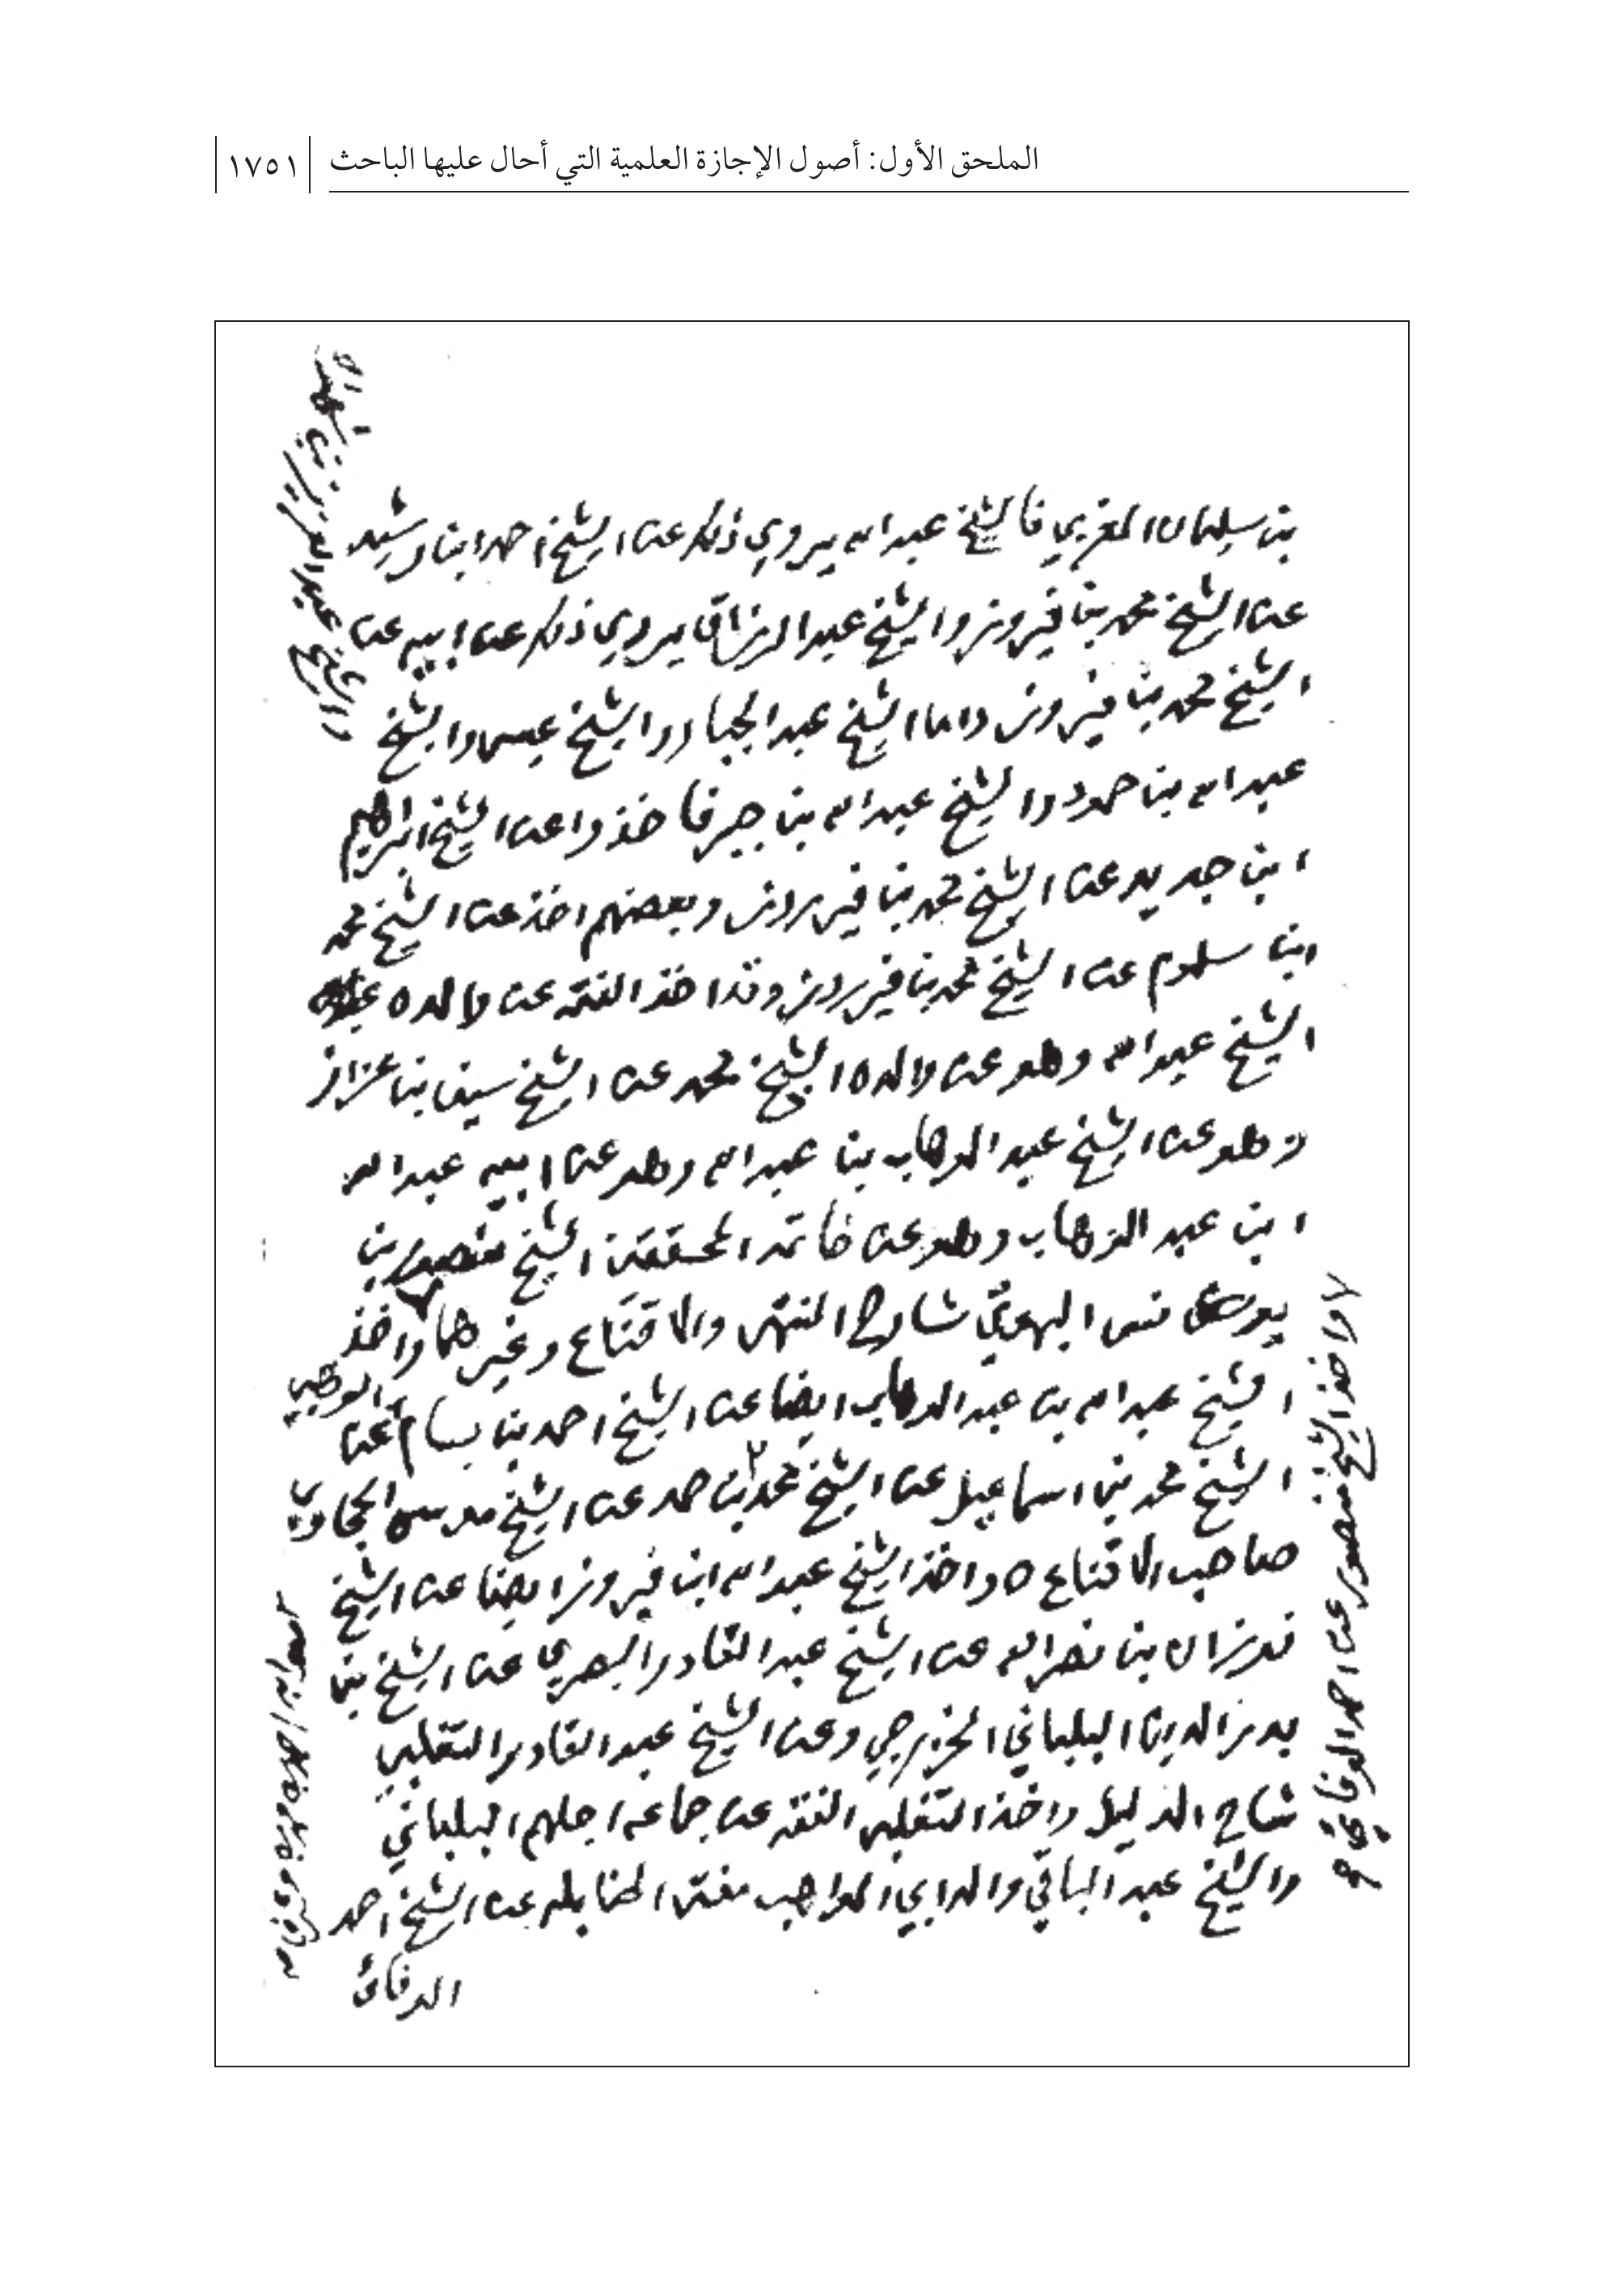 الملحق الأول: أصول الإجازة العلمية التي أحال عليها الباحث
١٧٥١
بن سليمان المغربي فالشيخ عبد الله يروي ذلك عن الشيخ أحمد ابن رشيد
عن الشيخ محمد بن فيروز والشيخ عبد الرزاق يروي ذلك عن ابيه عن
الشيخ محمد بن فيروز واما الشيخ عبد الجبار والشيخ عيسى والشيخ
عبد الله بن حمود والشيخ عبد الله بن جبر فاخذوا عن الشيخ ابراهيم
ابن جديد عن الشيخ محمد بن فيروز وبعضهم اخذ عن الشيخ محمد
ابن سلوم عن الشيخ محمد بن فيروز وقد اخذ الفقه عن والده
الشيخ عبد الله وهو عن والده الشيخ محمد عن الشيخ سيف بن عزاز
وهو عن الشيخ عبد الوهاب بن عبد الله وهو عن ابيه عبد الله
ابن عبد الوهاب وهو عن خاتمة المحققين الشيخ منصور بن
يونس البهوتي شارح المنتهى والاقناع وغيرهما واخذ
الشيخ عبد الله بن عبد الوهاب ايضا عن الشيخ احمد بن بسام عن
الشيخ محمد بن اسماعيل عن الشيخ محمد بن حمد عن الشيخ موسى الحجاوي
صاحب الاقناع ه واخذ الشيخ عبد الله ابن فيروز ايضا عن الشيخ
فوزان بن نصر الله عن الشيخ عبد القادر البصري عن الشيخ بن
بدر الدين البلباني الخزرجي وعن الشيخ عبد القادر التغلبي
شارح الدليل واخذ التغلبي الفقه عن جماعه اجلهم البلباني
والشيخ عبد الباقي والد ابي المواهب مفتي الحنابله عن الشيخ احمد
الوفائي
واخذ الشيخ منصور عن احمد الوفائي